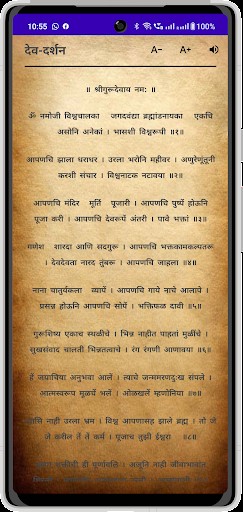 10:55
100%
देव-दर्शन
A−
A+
॥ श्रीगुरूदेवाय नमः ॥
ॐ नमोजी विश्वचालका जगदवंद्या ब्रह्मांडनायका एकचि
असोनि अनेका । भाससी विश्वरूपी ॥१॥
आपणचि झाला धराधर । उरला भरोनि महीवर । अणुरेणूंतूनी
करशी संचार । विश्वनाटक नटावया ॥२॥
आपणचि मंदिर मूर्ति पूजारी । आपणचि पुष्पें होऊनि
पूजा करी । आपणचि देवरूपें अंतरी । पावे भक्तां ॥३॥
गणेश शारदा आणि सदगुरू । आपणचि भक्तकामकल्पतरू
। देवदेवता नारद तुंबरू । आपणचि जाहला ॥४॥
नाना चातुर्यकला व्यापें । आपणचि गाये नाचे आलापे ।
प्रसन्न होऊनि आपणचि सोपें । भक्तिफळ दावी ॥५॥
गुरूशिष्य एकाच स्थळीचे । भिन्न नाहीत पाहतां मुळींचे ।
सुखसंवाद चालती भिन्नतत्वाचे । रंग रंगणी आणावया ॥६॥
हें जयाचिया अनुभवा आलें । त्याचे जन्ममरणदुःख संपले ।
आत्मस्वरूप मूळचें भलें । ओळखलें म्हणोनिया ॥७॥
नाही उरला भ्रम । विश्व आपणासह झाले ब्रह्म । तो जें
जें करील तें तें कर्म । पूजाच तुझी ईश्वरा ॥८॥